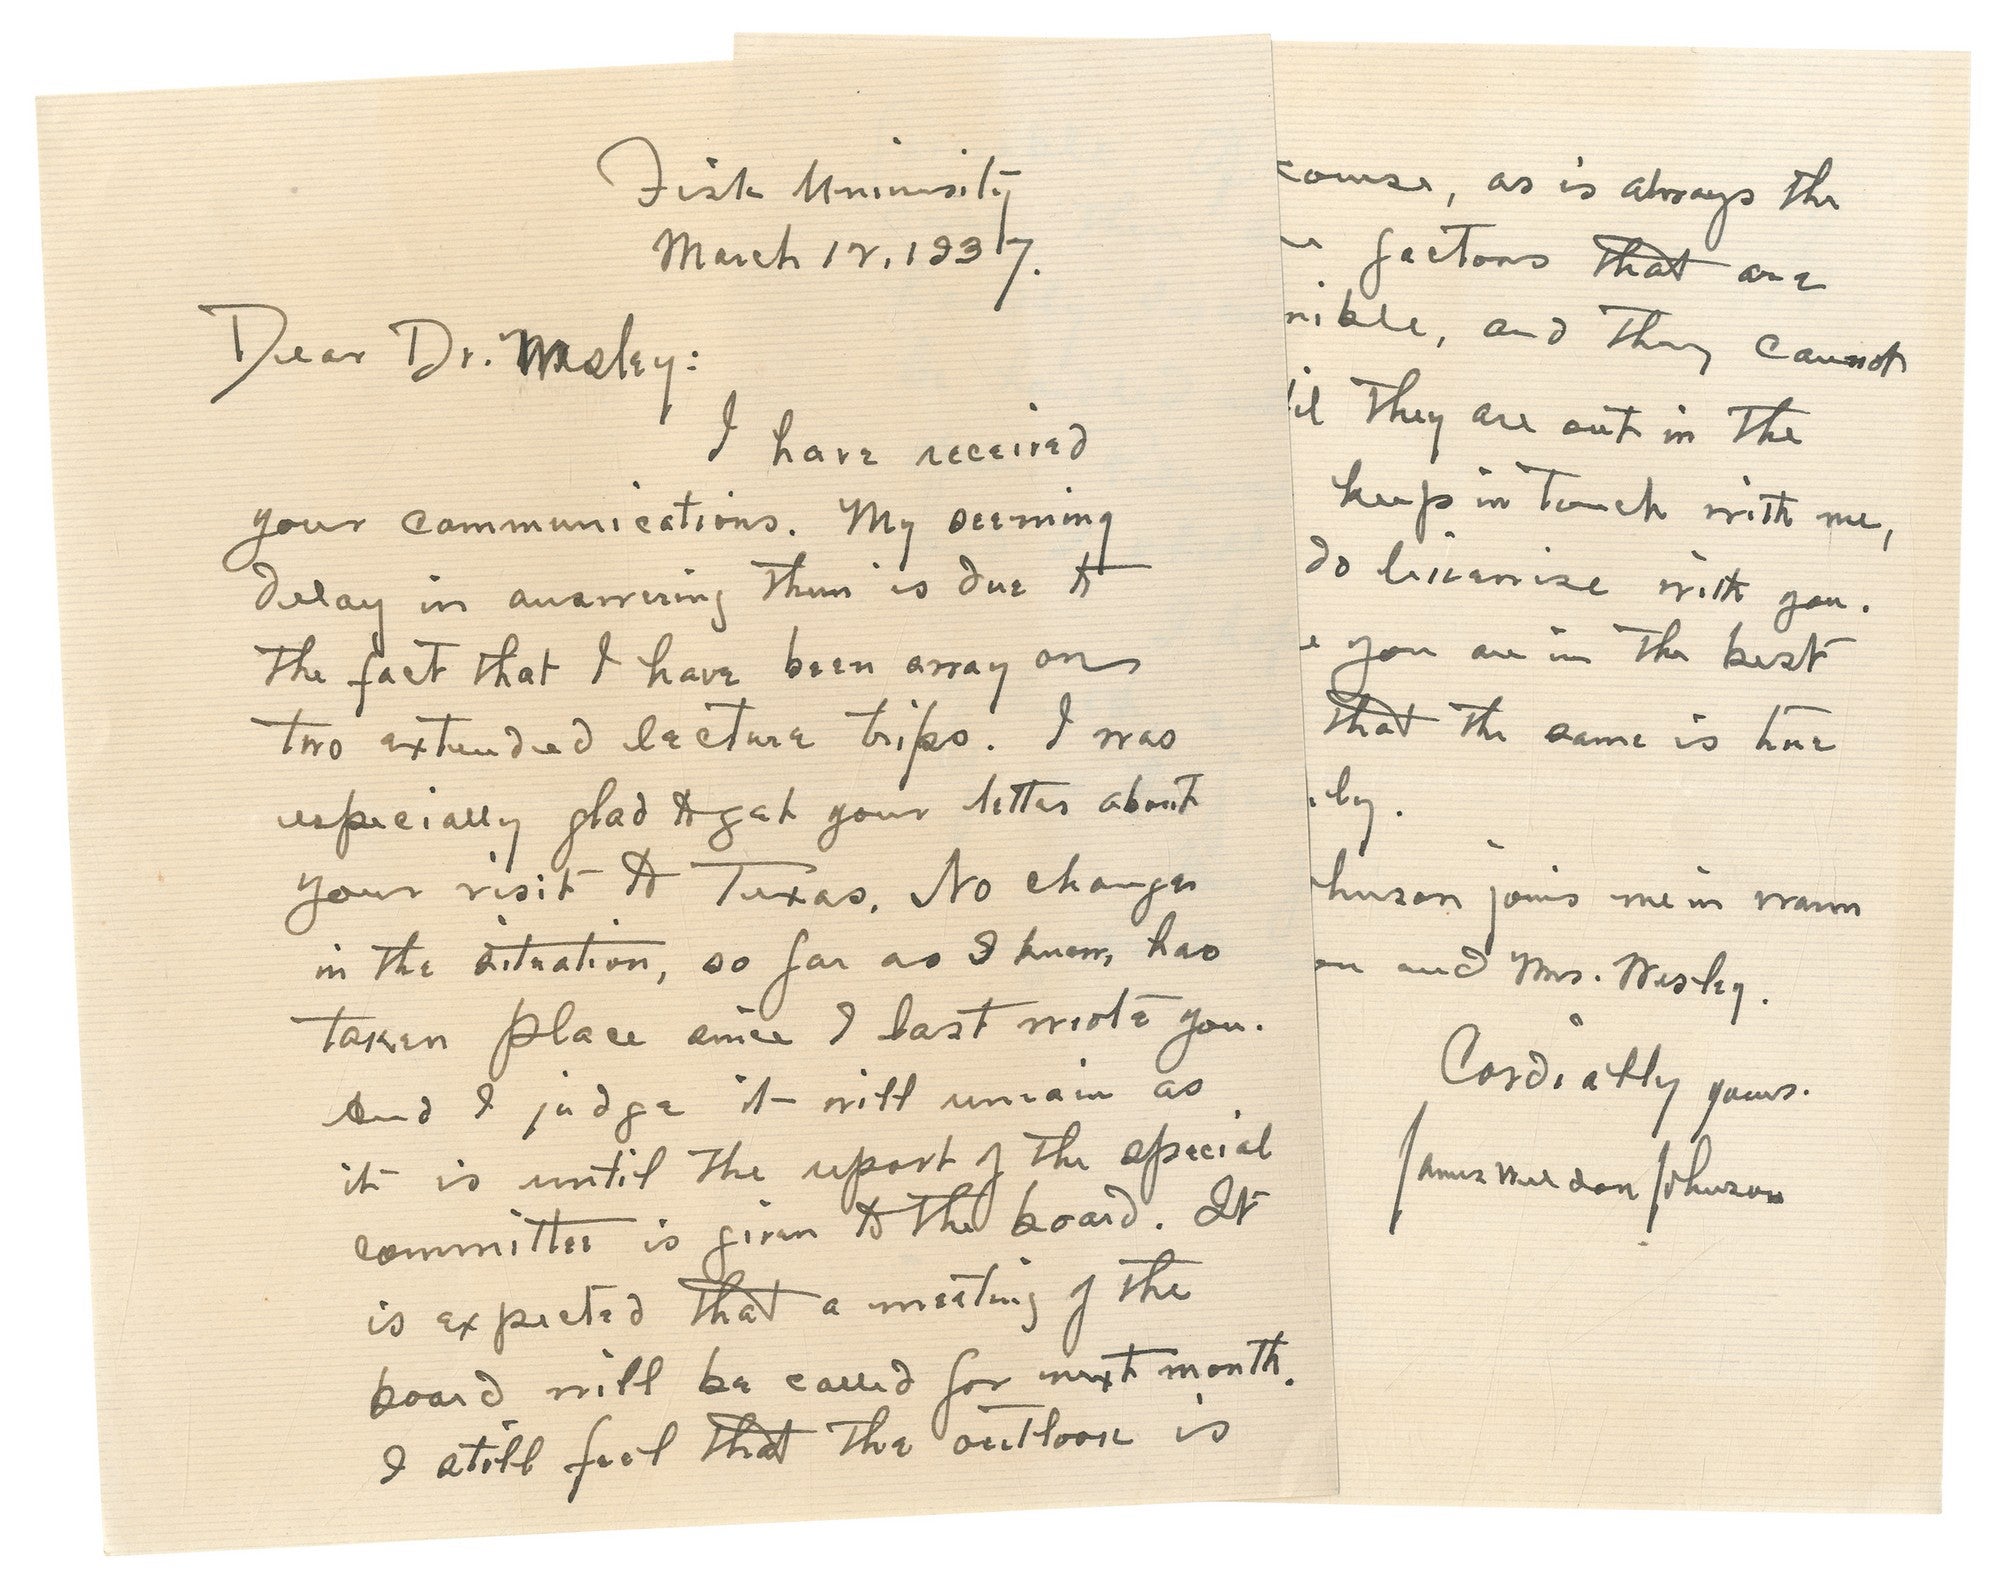 Fisk University
March 12, 1937.
Dear Dr. Wesley:
I have received
your communications. My seeming
delay in answering them is due to
the fact that I have been away on
two extended lecture trips. I was
especially glad to get your letter about
your visit to Texas. No changes
in the situation, so far as I know, has
taken place since I last wrote you.
And I judge it will remain as
it is until the report of the special
committee is given to the board. It
is expected that a meeting of the
board will be called for next month.
I still feel that the outlook is
course, as is always the
factors that are
and they cannot
they are out in the
keep in touch with me,
do likewise with you.
you are in the best
that the same is true
joins me in warm
and Mrs. Wesley.
Cordially yours.
James Weldon Johnson